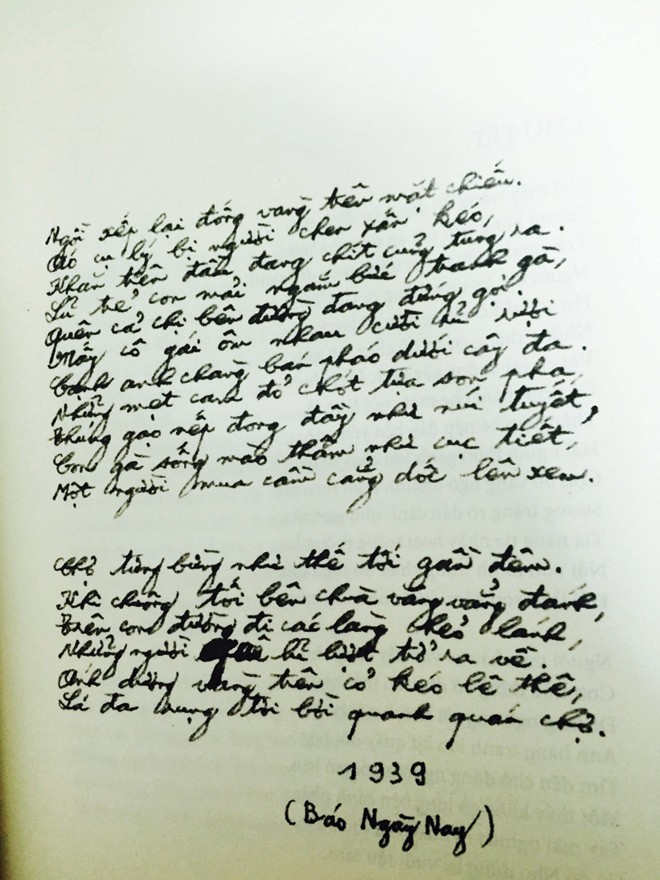 Ngồi xếp lại đống vàng trên mặt chiếu.
Áo cụ lý bị người chen xấn kéo,
Khăn trên đầu đang chít cũng tung ra.
Lũ trẻ con mải ngắm bức tranh gà,
Quên cả chị bên đường đang đứng gọi.
Mấy cô gái ôm nhau cười rũ rượi
Cạnh anh chàng bán pháo dưới cây đa.
Những mẹt cam đỏ chót tựa son pha,
Thúng gạo nếp đong đầy như núi tuyết,
Con gà sống mào thâm như cục tiết,
Một người mua cầm cẳng dốc lên xem.
Chợ tưng bừng như thế tới gần đêm.
Khi chuông tối bên chùa văng vẳng đánh,
Trên con đường đi các làng hẻo lánh,
Những người quê lũ lượt trở ra về.
Ánh dương vàng trên cỏ kéo lê thê,
Lá đa rụng tơi bời quanh quán chợ.
1939
(Báo Ngày Nay)